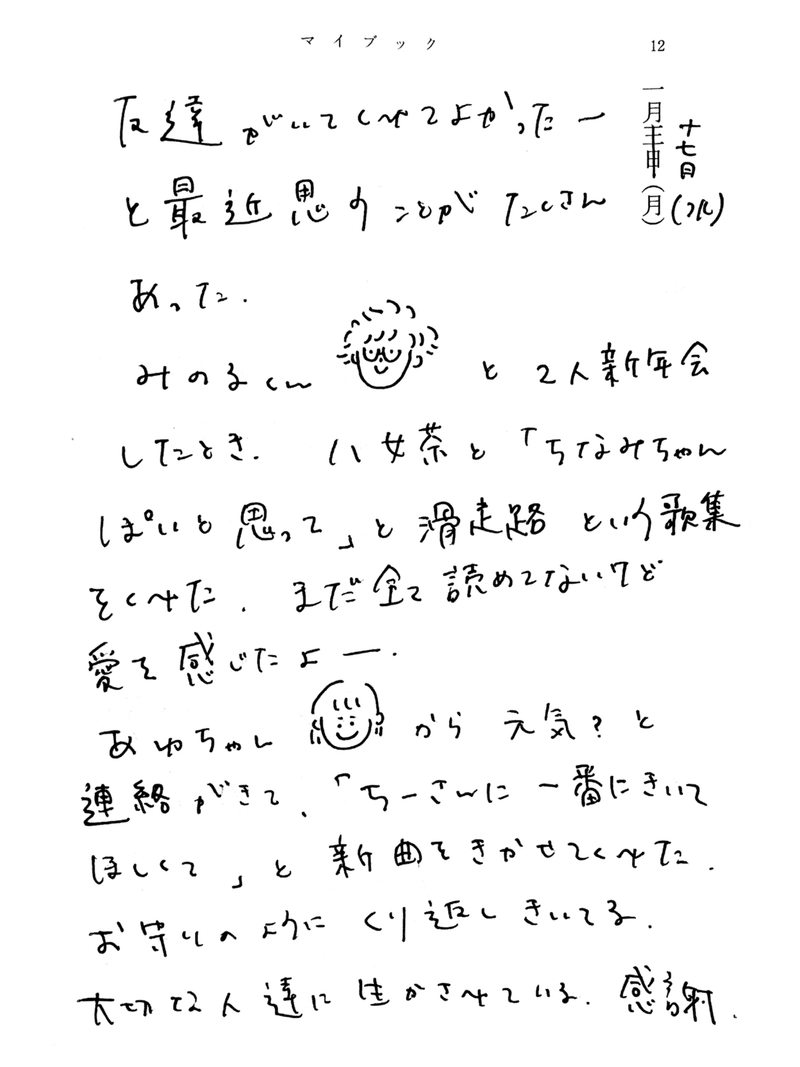 マイブック 12
一月 (月)
十七日(水)
友達がいてくれてよかったー
と最近思うことがたくさん
あった.
みのるくん と 2人新年会
したとき. 八女茶と「ちなみちゃん
ぽいと思って」と滑走路という歌集
をくれた. まだ全て読めてないけど
愛を感じたよー.
あゆちゃん から 元気?と
連絡がきて、「ちーさんに一番にきいて
ほしくて」と新曲をきかせてくれた.
お守りのようにくり返しきいてる.
大切な人達に生かされている. 感謝.